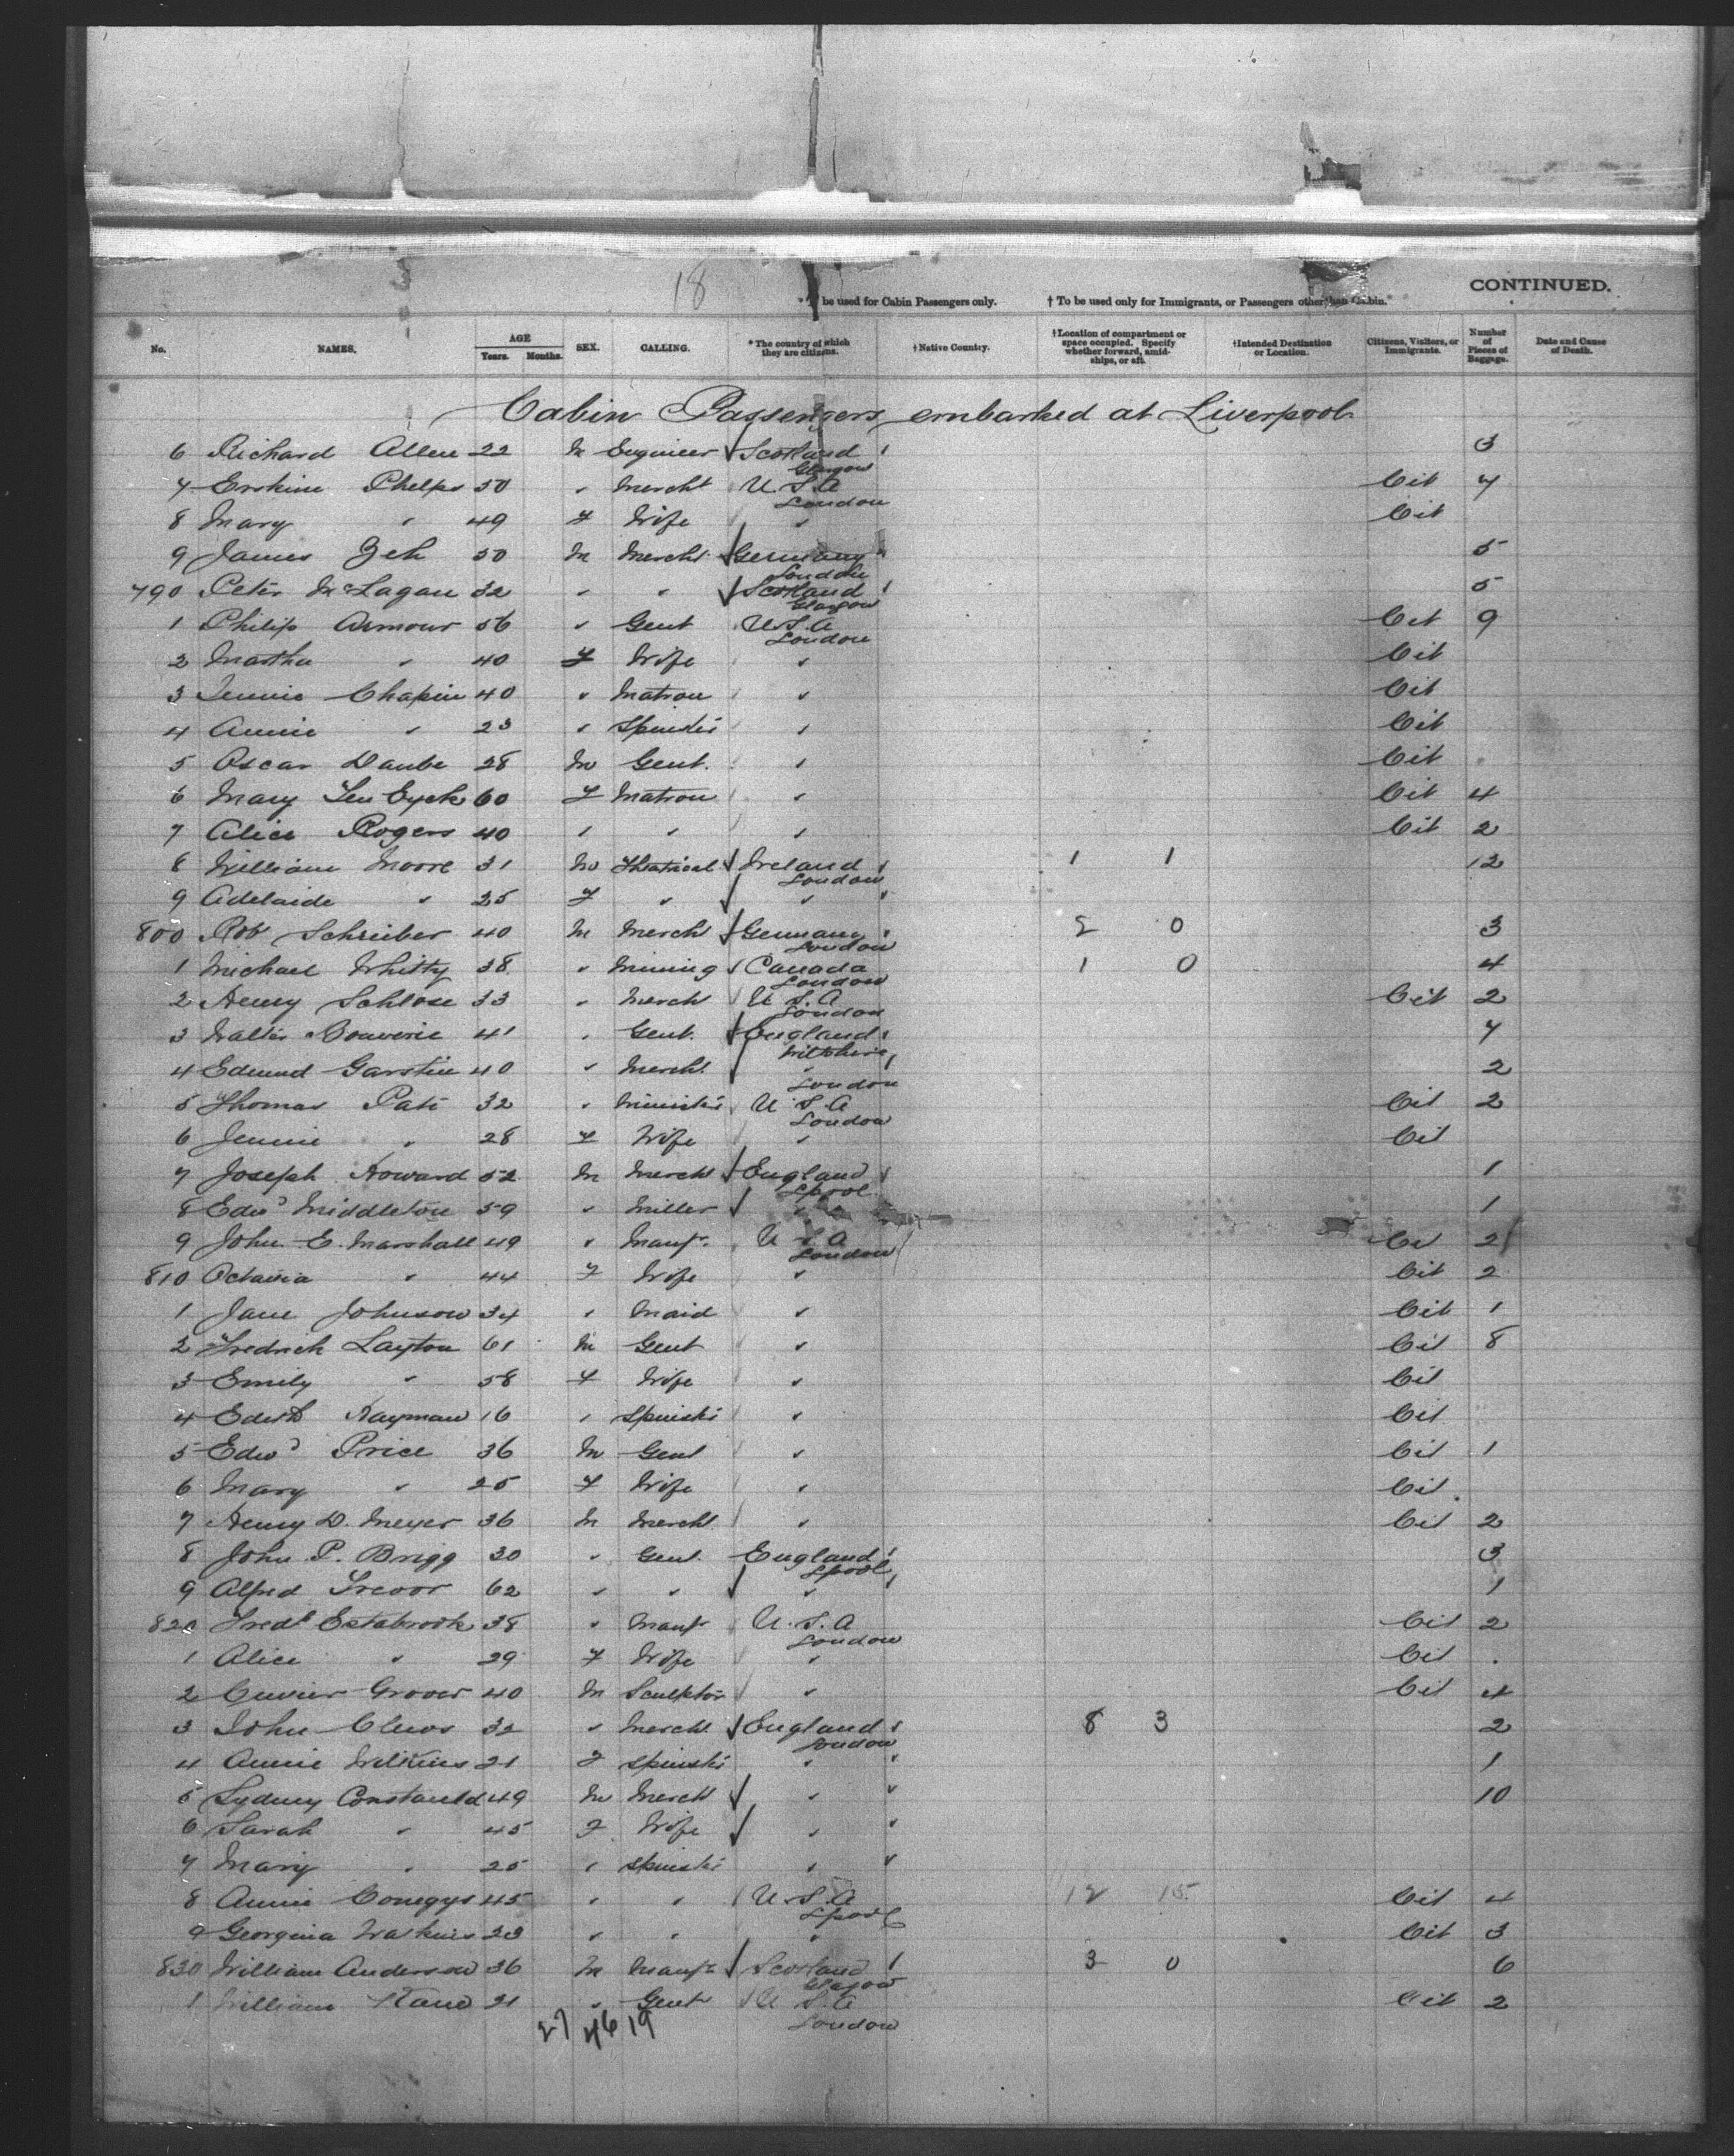 18
CONTINUED.
* To be used for Cabin Passengers only. † To be used only for Immigrants, or Passengers other than Cabin.
No. NAMES. AGE Years. Months. SEX. CALLING. * The country of which they are citizens. † Native Country. † Location of compartment or space occupied. Specify whether forward, amidships, or aft. † Intended Destination or Location. Citizens, Visitors, or Immigrants. Number of Pieces of Baggage. Date and Cause of Death.
Cabin Passengers embarked at Liverpool
6 Richard Allen 22 M Engineer Scotland Glasgow 3
7 Erskine Phelps 50 " Mercht U.S.A London Cit 7
8 Mary " 49 F Wife " Cit
9 James Zeh 50 M Mercht Germany London 5
790 Peter McLagan 32 " " Scotland Glasgow 5
1 Philip Armour 56 " Gent U.S.A London Cit 9
2 Martha " 40 F Wife " Cit
3 Jennie Chapin 40 " Matron " Cit
4 Annie " 23 " Spinster " Cit
5 Oscar Daube 28 M Gent. " Cit
6 Mary Ten Eyck 60 F Matron " Cit 4
7 Alice Rogers 40 " " " Cit 2
8 William Moore 31 M Theatrical Ireland London 1 1 12
9 Adelaide " 25 F " "
800 Rob Schreiber 40 M Merch Germany London 2 0 3
1 Michael Whitty 38 " Mining Canada London 1 0 4
2 Henry Schlose 33 " Merch U.S.A London Cit 2
3 Walter Bouverie 41 " Gent. England Wiltshire 7
4 Edmund Garstin 40 " Mercht " London 2
5 Thomas Pate 32 " Minister U.S.A London Cit 2
6 Jennie " 28 F Wife " Cit
7 Joseph Howard 52 M Mercht England Lpool 1
8 Edwd Middleton 59 " Miller " 1
9 John E. Marshall 49 " Manfr. U S A London Cit 2
810 Octavia " 44 F Wife " Cit 2
1 Jane Johnson 34 " Maid " Cit 1
2 Fredrich Layton 61 M Gent " Cit 8
3 Emily " 58 F Wife " Cit
4 Edith Hayman 16 " Spinster " Cit
5 Edwd Price 36 M Gent " Cit 1
6 Mary " 25 F Wife " Cit
7 Henry D. Meyer 36 M Mercht " Cit 2
8 John P. Brigg 30 " Gent. England Lpool 3
9 Alfred Trevor 62 " " " 1
820 Fredk Estabrook 38 " Manfr U.S.A London Cit 2
1 Alice " 29 F Wife " Cit
2 Cuvier Grover 40 M Sculptor " Cit 4
3 John Clews 32 " Mercht England London 8 3 2
4 Annie Wilkins 21 F Spinster " 1
5 Sydney 49 M Mercht " 10
6 Sarah " 45 F Wife "
7 Mary " 25 " Spinster "
8 Annie Comegys 45 " " U.S.A Lpool 12 15 Cit 4
9 Georgina Watkins 23 " " " Cit 3
830 William Anderson 36 M Manfr Scotland Glasgow 3 0 6
1 William Kane 21 " Gent U S A London Cit 2
27 46 19